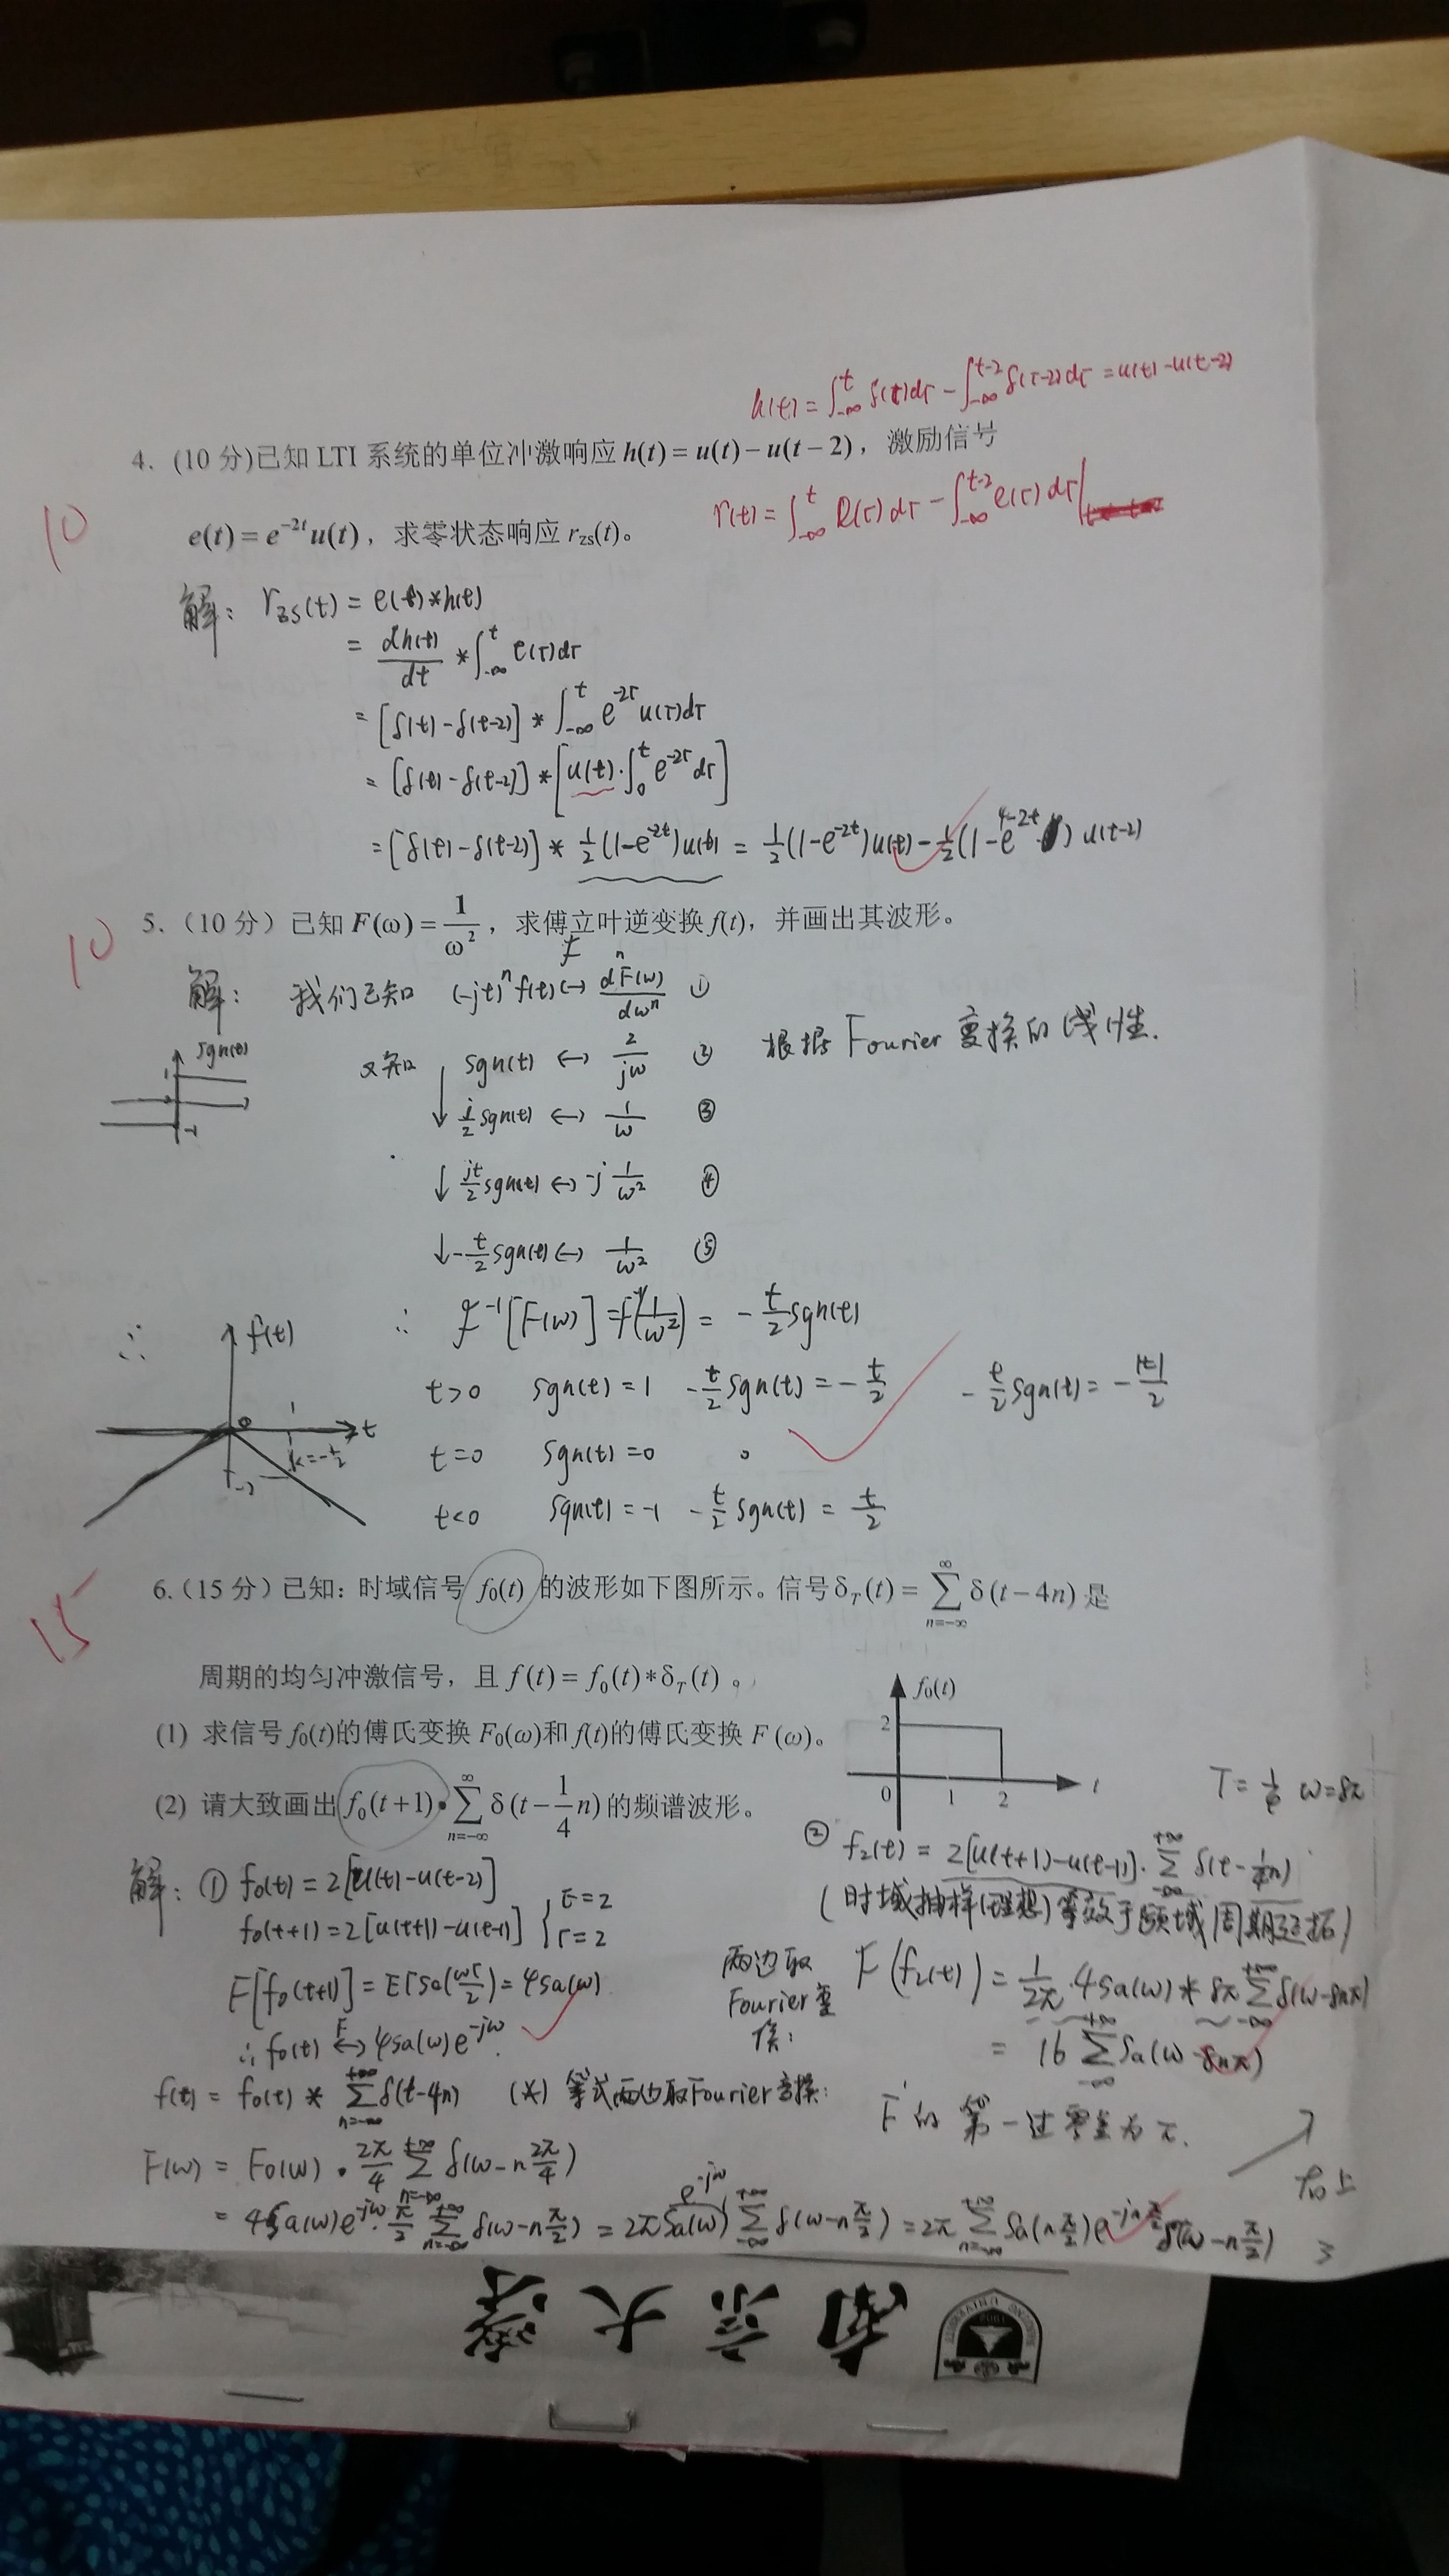 h(t) = ∫_{-∞}^{t} δ(τ)dτ - ∫_{-∞}^{t-2} δ(τ-2)dτ = u(t) - u(t-2)
4. (10 分)已知 LTI 系统的单位冲激响应 h(t) = u(t) − u(t − 2)，激励信号
r(t) = ∫_{-∞}^{t} e(τ)dτ - ∫_{-∞}^{t-2} e(τ)dτ
10
e(t) = e^{−2t}u(t)，求零状态响应 r_{zs}(t)。
解： r_{zs}(t) = e(t)*h(t)
= \frac{dh(t)}{dt} * ∫_{-∞}^{t} e(τ)dτ
= [δ(t)-δ(t-2)] * ∫_{-∞}^{t} e^{-2τ}u(τ)dτ
= [δ(t)-δ(t-2)] * [u(t)·∫_{0}^{t} e^{-2τ}dτ]
= [δ(t)-δ(t-2)] * \frac{1}{2}(1-e^{-2t})u(t) = \frac{1}{2}(1-e^{-2t})u(t) - \frac{1}{2}(1-e^{4-2t})u(t-2)
10
5.（10 分）已知 F(ω) = \frac{1}{ω^2}，求傅立叶逆变换 f(t)，并画出其波形。
解： 我们已知 (-jt)^n f(t) ↔ \frac{d^n F(ω)}{dω^n} ①
sgn(t)
1
-1
又知 sgn(t) ↔ \frac{2}{jω} ② 根据 Fourier 变换的线性.
↓ \frac{j}{2}sgn(t) ↔ \frac{1}{ω} ③
↓ \frac{jt}{2}sgn(t) ↔ -j\frac{1}{ω^2} ④
↓ -\frac{t}{2}sgn(t) ↔ \frac{1}{ω^2} ⑤
∴ F^{-1}[F(ω)] = F^{-1}(\frac{1}{ω^2}) = -\frac{t}{2}sgn(t)
∴ f(t)
t>0 sgn(t)=1 -\frac{t}{2}sgn(t) = -\frac{t}{2} -\frac{t}{2}sgn(t) = -\frac{|t|}{2}
0 1 t
t=0 sgn(t)=0 0
t<0 sgn(t)=-1 -\frac{t}{2}sgn(t) = \frac{t}{2}
15
6.（15 分）已知：时域信号 f_0(t) 的波形如下图所示。信号 δ_T(t) = \sum_{n=-∞}^{∞} δ(t − 4n) 是
周期的均匀冲激信号，且 f(t) = f_0(t)*δ_T(t) 。
f_0(t)
2
0 1 2 t
(1) 求信号 f_0(t)的傅氏变换 F_0(ω)和 f(t)的傅氏变换 F (ω)。
(2) 请大致画出 f_0(t+1)•\sum_{n=-∞}^{∞} δ(t − \frac{1}{4}n) 的频谱波形。
ω=8π
解：① f_0(t) = 2[u(t)-u(t-2)]
f_0(t+1) = 2[u(t+1)-u(t-1)] { E=2 τ=2
F[f_0(t+1)] = EτSa(\frac{ωτ}{2}) = 4Sa(ω)
∴ f_0(t) ↔^F 4Sa(ω)e^{-jω}.
f(t) = f_0(t) * \sum_{n=-∞}^{+∞} δ(t-4n) (*) 等式两边取Fourier变换:
F(ω) = F_0(ω)·\frac{2π}{4} \sum_{n=-∞}^{+∞} δ(ω-n\frac{2π}{4})
= 4Sa(ω)e^{-jω}·\frac{π}{2} \sum_{n=-∞}^{+∞} δ(ω-n\frac{π}{2}) = 2πSa(ω)e^{-jω} \sum_{-∞}^{+∞} δ(ω-n\frac{π}{2}) = 2π \sum_{n=-∞}^{+∞} Sa(n\frac{π}{2})e^{-jn\frac{π}{2}}δ(ω-n\frac{π}{2})
② f_2(t) = 2[u(t+1)-u(t-1)]·\sum_{-∞}^{+∞} δ(t-\frac{1}{4}n)
(时域抽样(理想)等效于频域周期延拓)
两边取Fourier变换: F(f_2(t)) = \frac{1}{2π}·4Sa(ω) * 8π\sum_{-∞}^{+∞} δ(ω-8nπ)
= 16 \sum_{-∞}^{+∞} Sa(ω-8nπ)
F 的第一过零点为 π.
3
南京大学